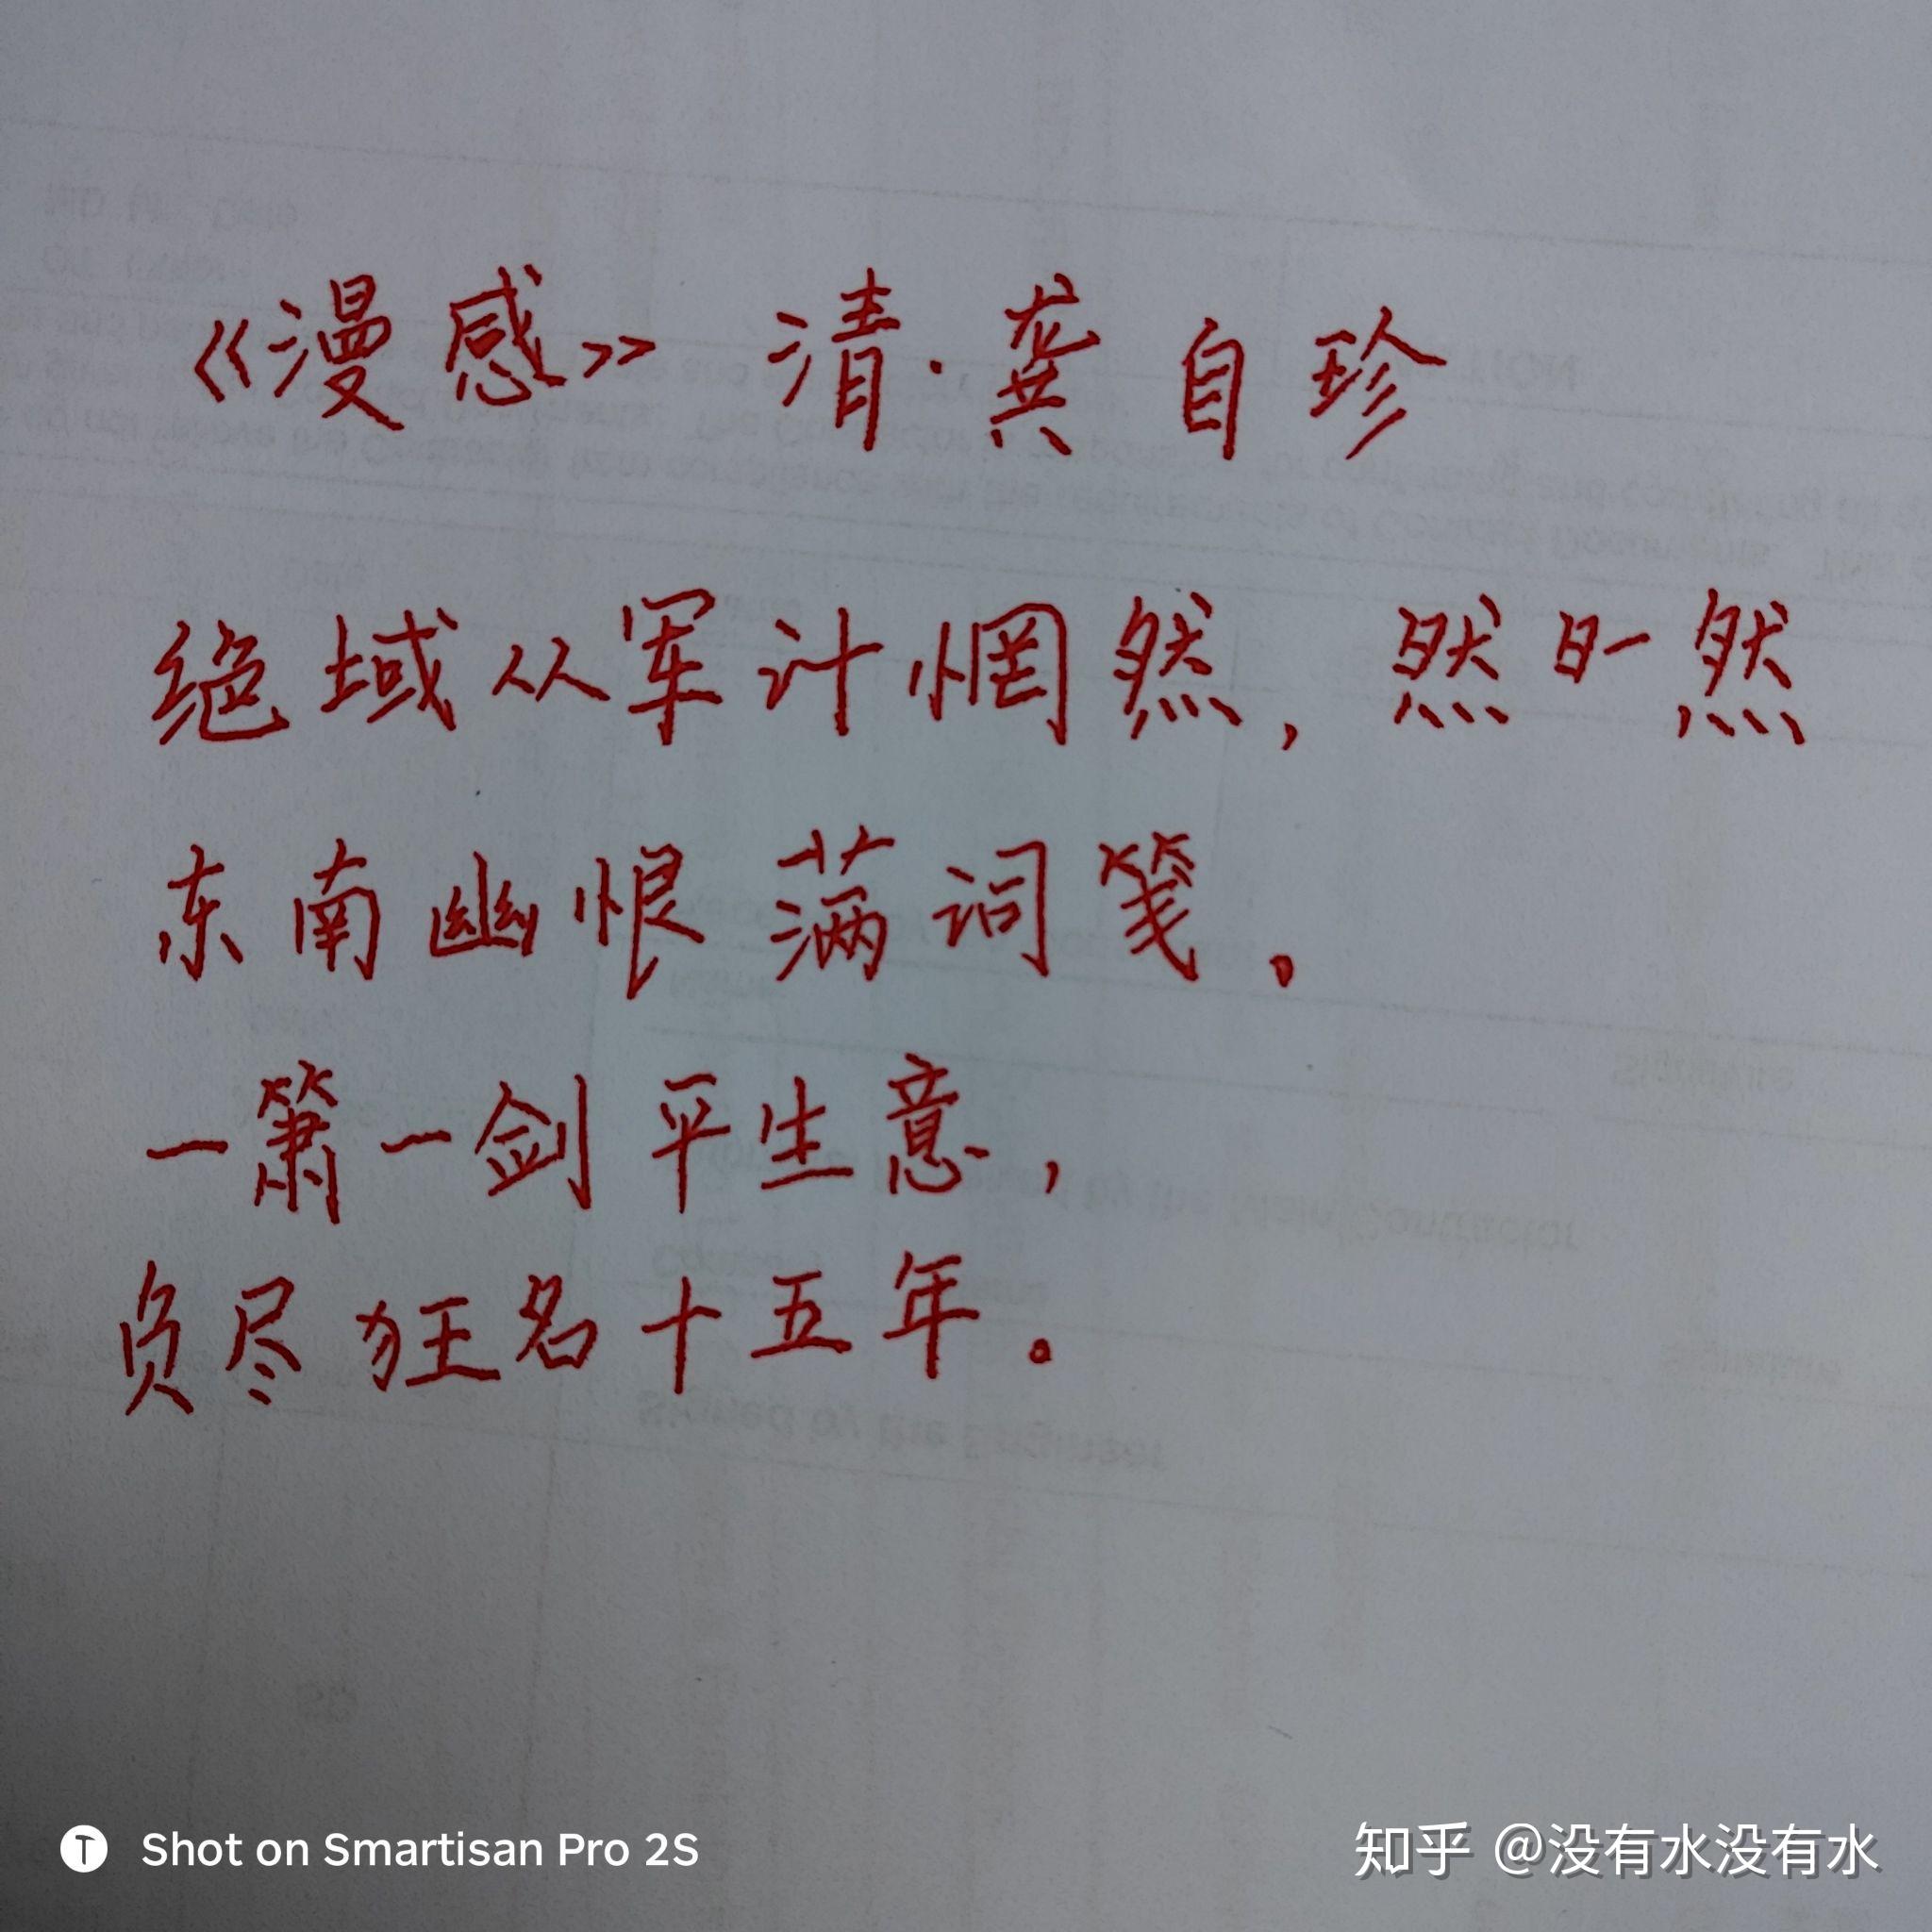 《漫感》 清·龚自珍
绝域从军计惘然， 然 然
东南幽恨满词笺。
一箫一剑平生意，
负尽狂名十五年。
Shot on Smartisan Pro 2S
知乎 @没有水没有水